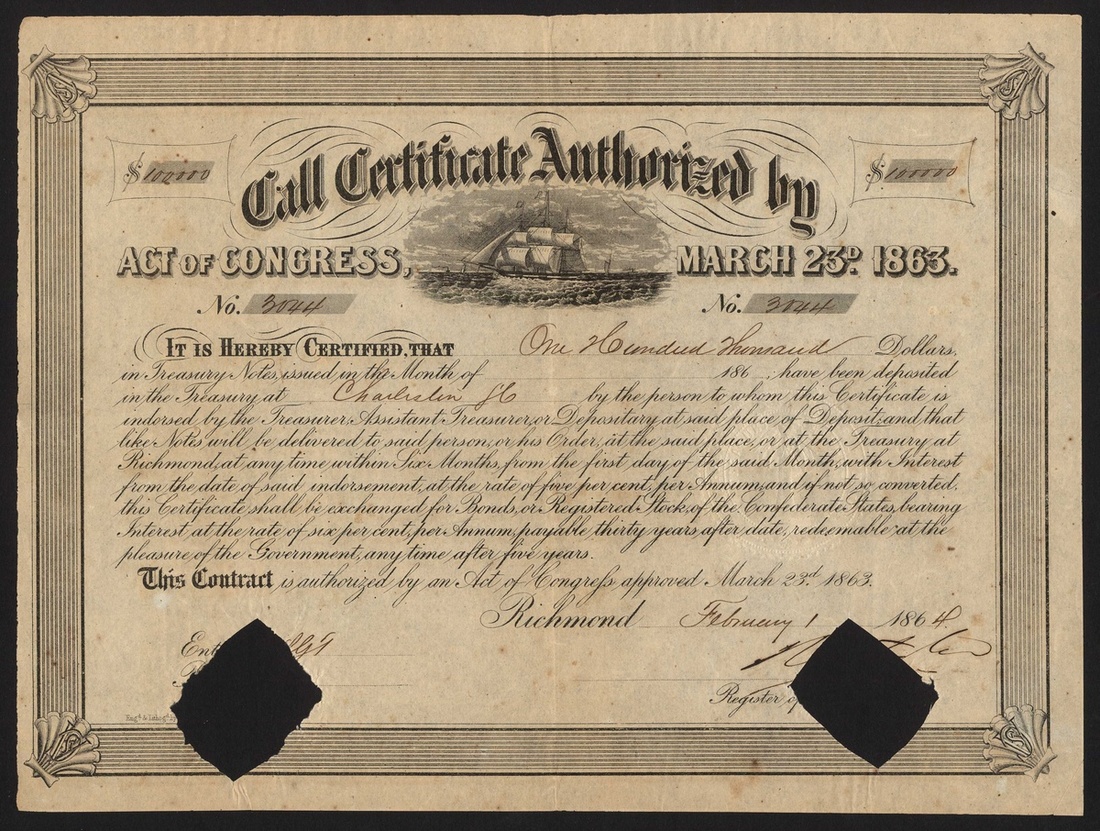 $100000
$100000
Call Certificate Authorized by
ACT OF CONGRESS, MARCH 23D 1863.
No. 3044 No. 3044
IT IS HEREBY CERTIFIED, THAT One Hundred Thousand Dollars,
in Treasury Notes, issued in the Month of 186 ; have been deposited
in the Treasury at Charleston SC by the person to whom this Certificate is
indorsed by the Treasurer, Assistant Treasurer, or Depositary at said place of Deposit: and that
like Notes will be delivered to said person, or his Order, at the said place, or at the Treasury at
Richmond, at any time, within Six Months, from the first day of the said Month, with Interest
from the date of said indorsement, at the rate of five per cent, per Annum, and if not so converted,
this Certificate shall be exchanged for Bonds, or Registered Stock, of the Confederate States, bearing
Interest at the rate of six per cent, per Annum, payable thirty years after date, redeemable at the
pleasure of the Government, any time after five years.
This Contract is authorized by an Act of Congress approved March 23d 1863.
Richmond February 1 1864.
Ent
Register of
Engd & Lithogd by